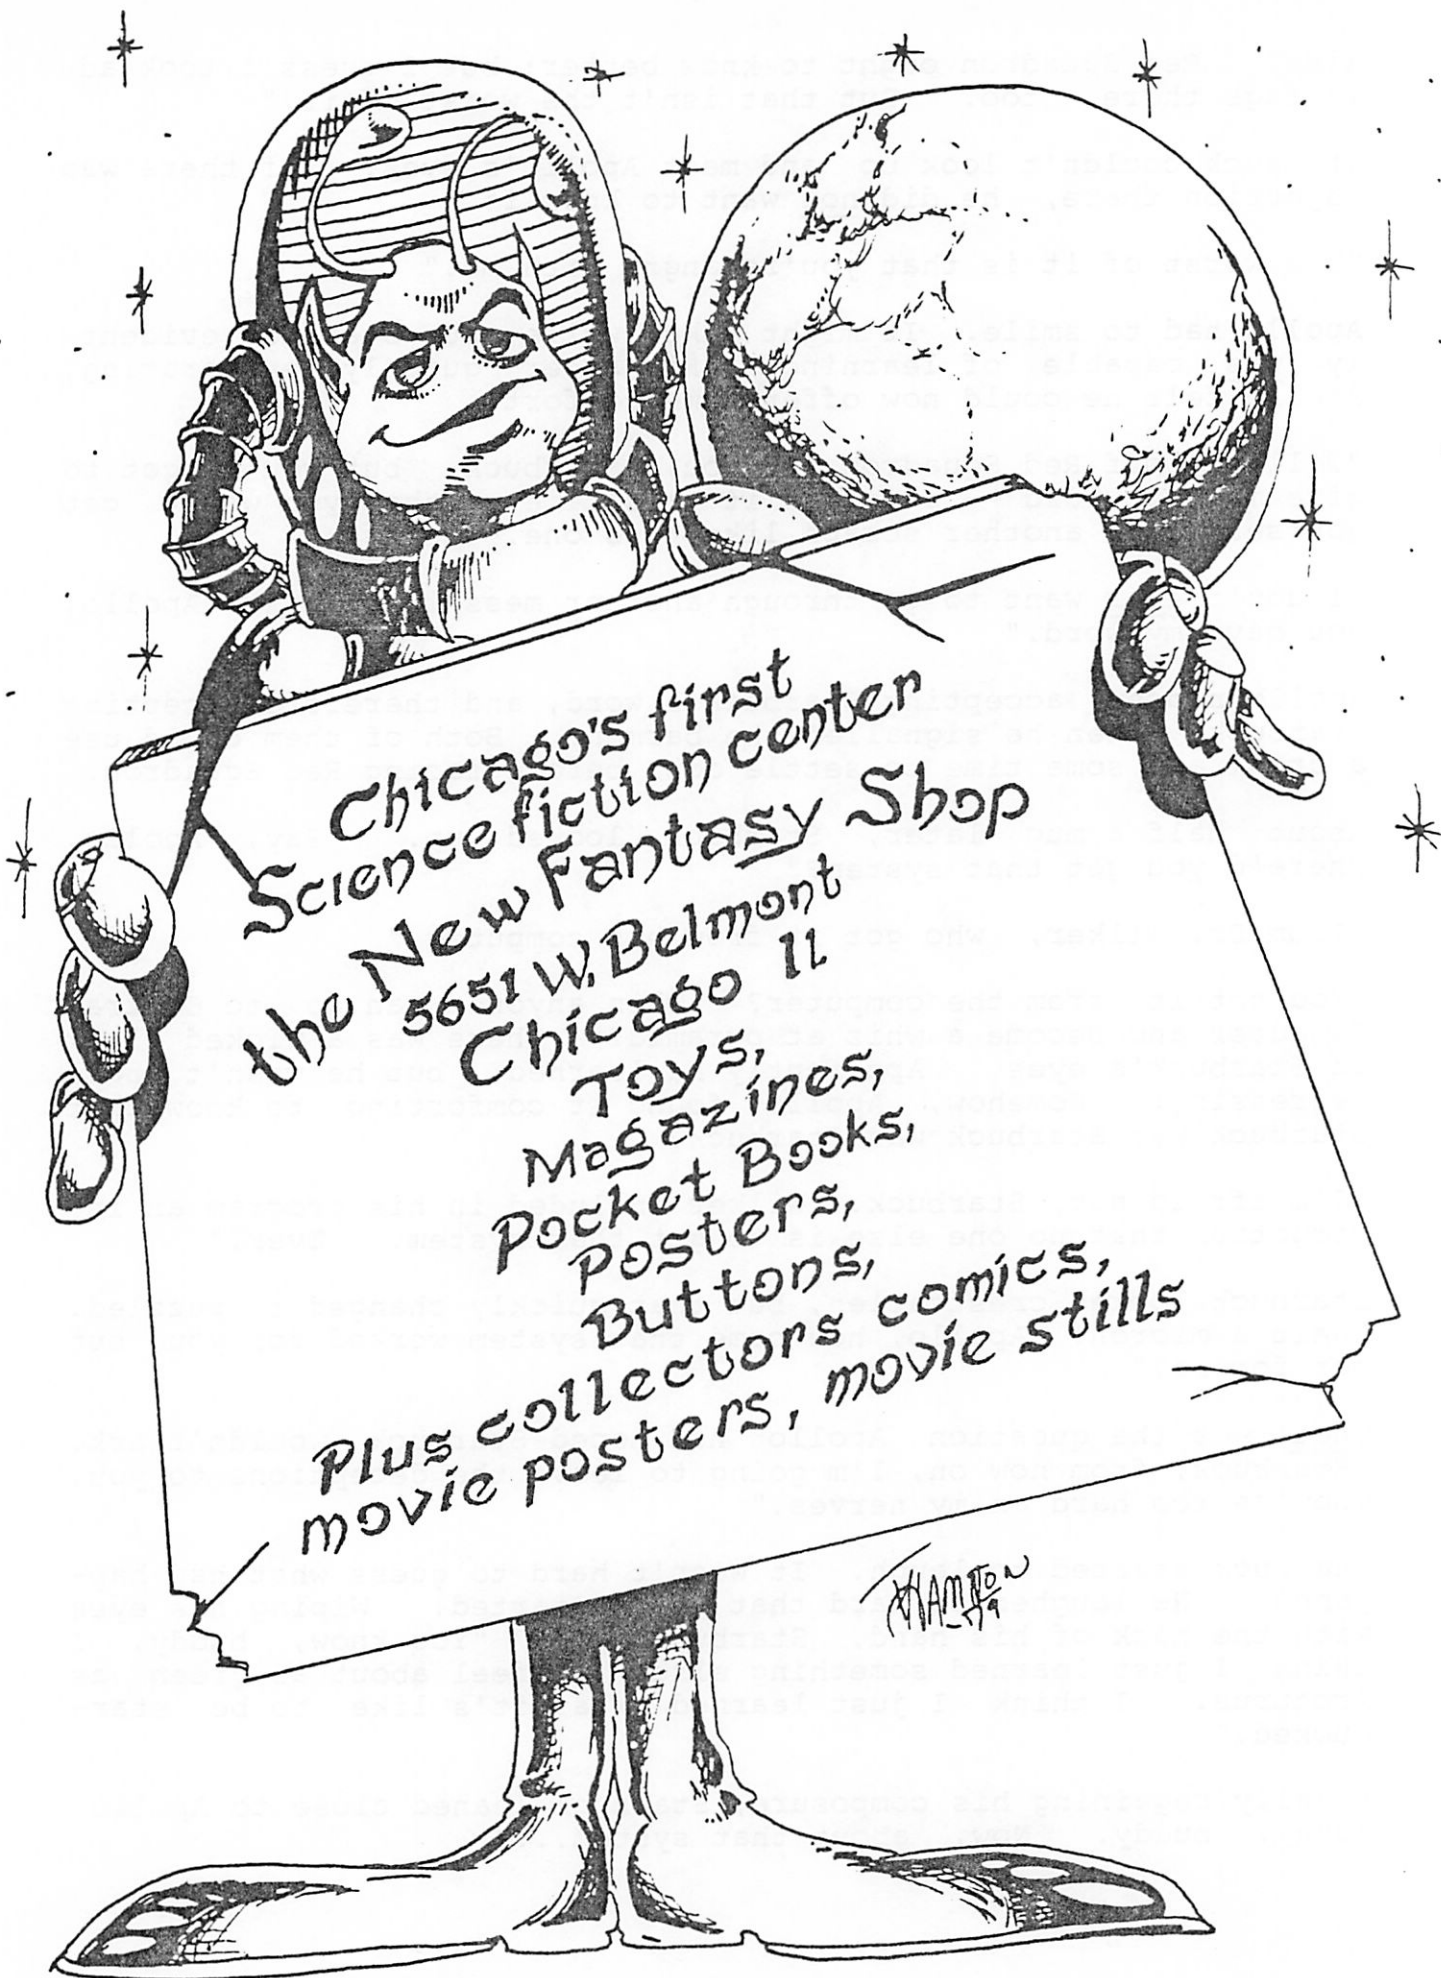 Chicago's first
Science fiction center
the New Fantasy Shop
5651 W. Belmont
Chicago Il
Toys,
Magazines,
Pocket Books,
Posters,
Buttons,
Plus collectors comics,
movie posters, movie stills